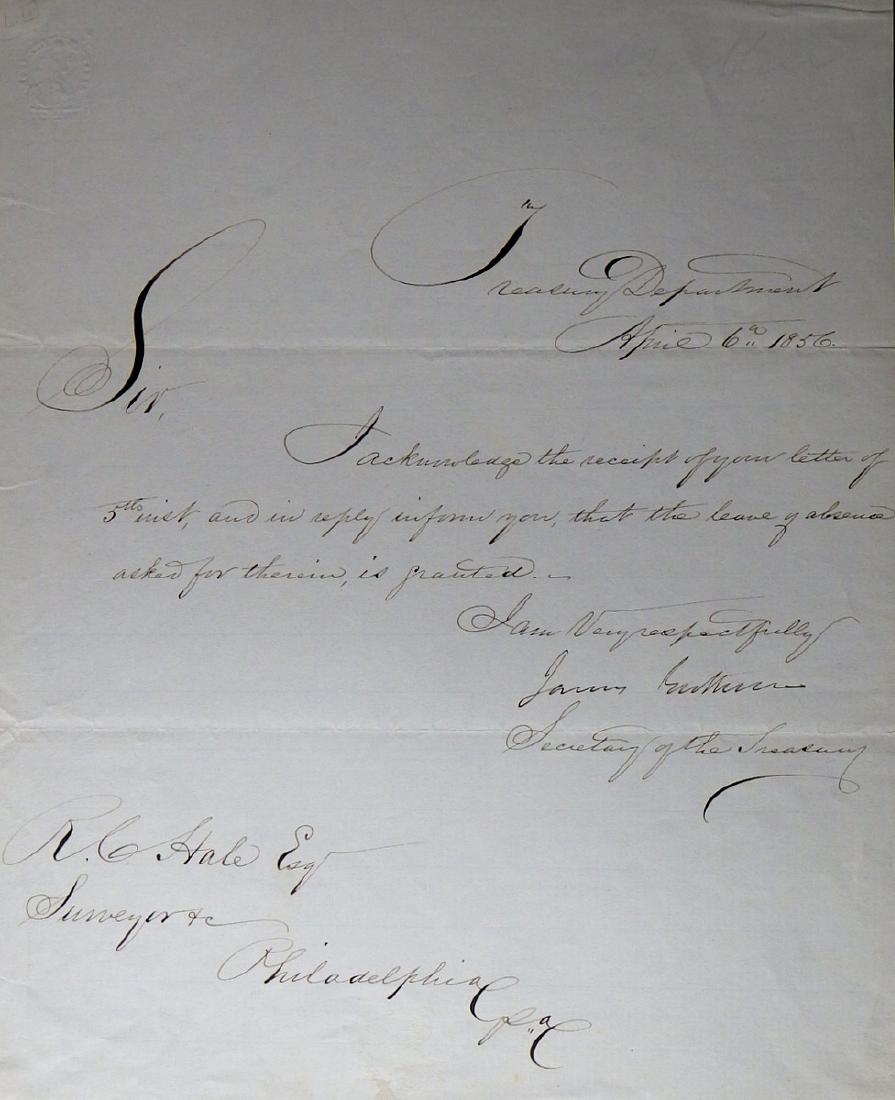 Treasury Department
April 6th 1856.
Sir,
I acknowledge the receipt of your letter of
5th inst, and in reply inform you, that the leave of absence
asked for therein, is granted.
I am Very respectfully
James Guthrie
Secretary of the Treasury
R. C. Hale Esqr
Surveyor &c
Philadelphia
Pa